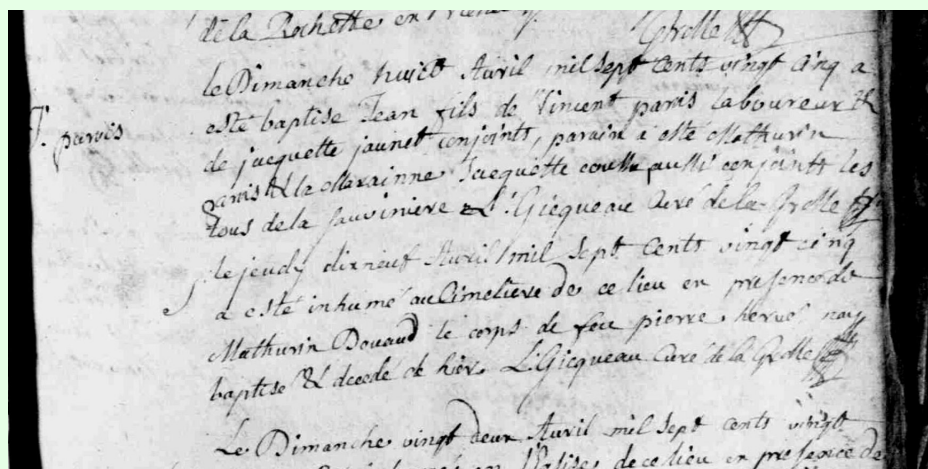 de la Rochette en
Grolle
le Dimanche huict Avril mil sept cents vingt cinq a
esté baptise Jean fils de Vincent paris laboureur &
de jacquette jaunet conjoints, parain a esté Mathurin
paris & la Marainne Jacquette aussi conjoints les
tous de la sauviniere L. Gicqueau Curé de la Grolle
J. parois
le jeudy dixneuf Avril mil sept cents vingt cinq
a esté inhumé au Cimetiere de ce lieu en presence de
Mathurin Douaud le corps de feu pierre hervé nay
baptise & decedé de hier L. Gicqueau Curé de la Grolle
Le Dimanche vingt deux Avril mil sept cents vingt
en l'eglise de ce lieu en presence de